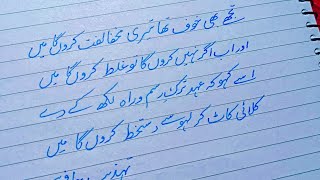 تجھے بھی خوف تھا تیری مخالفت کروں گا میں
اور اب اگر نہیں کروں گا تو غلط کروں گا میں
اسے کہو کہ عہدِ ترکِ رسم و راہ لکھ کے دے
کلائی کاٹ کر لہو سے دستخط کروں گا میں
تہذیب حافی